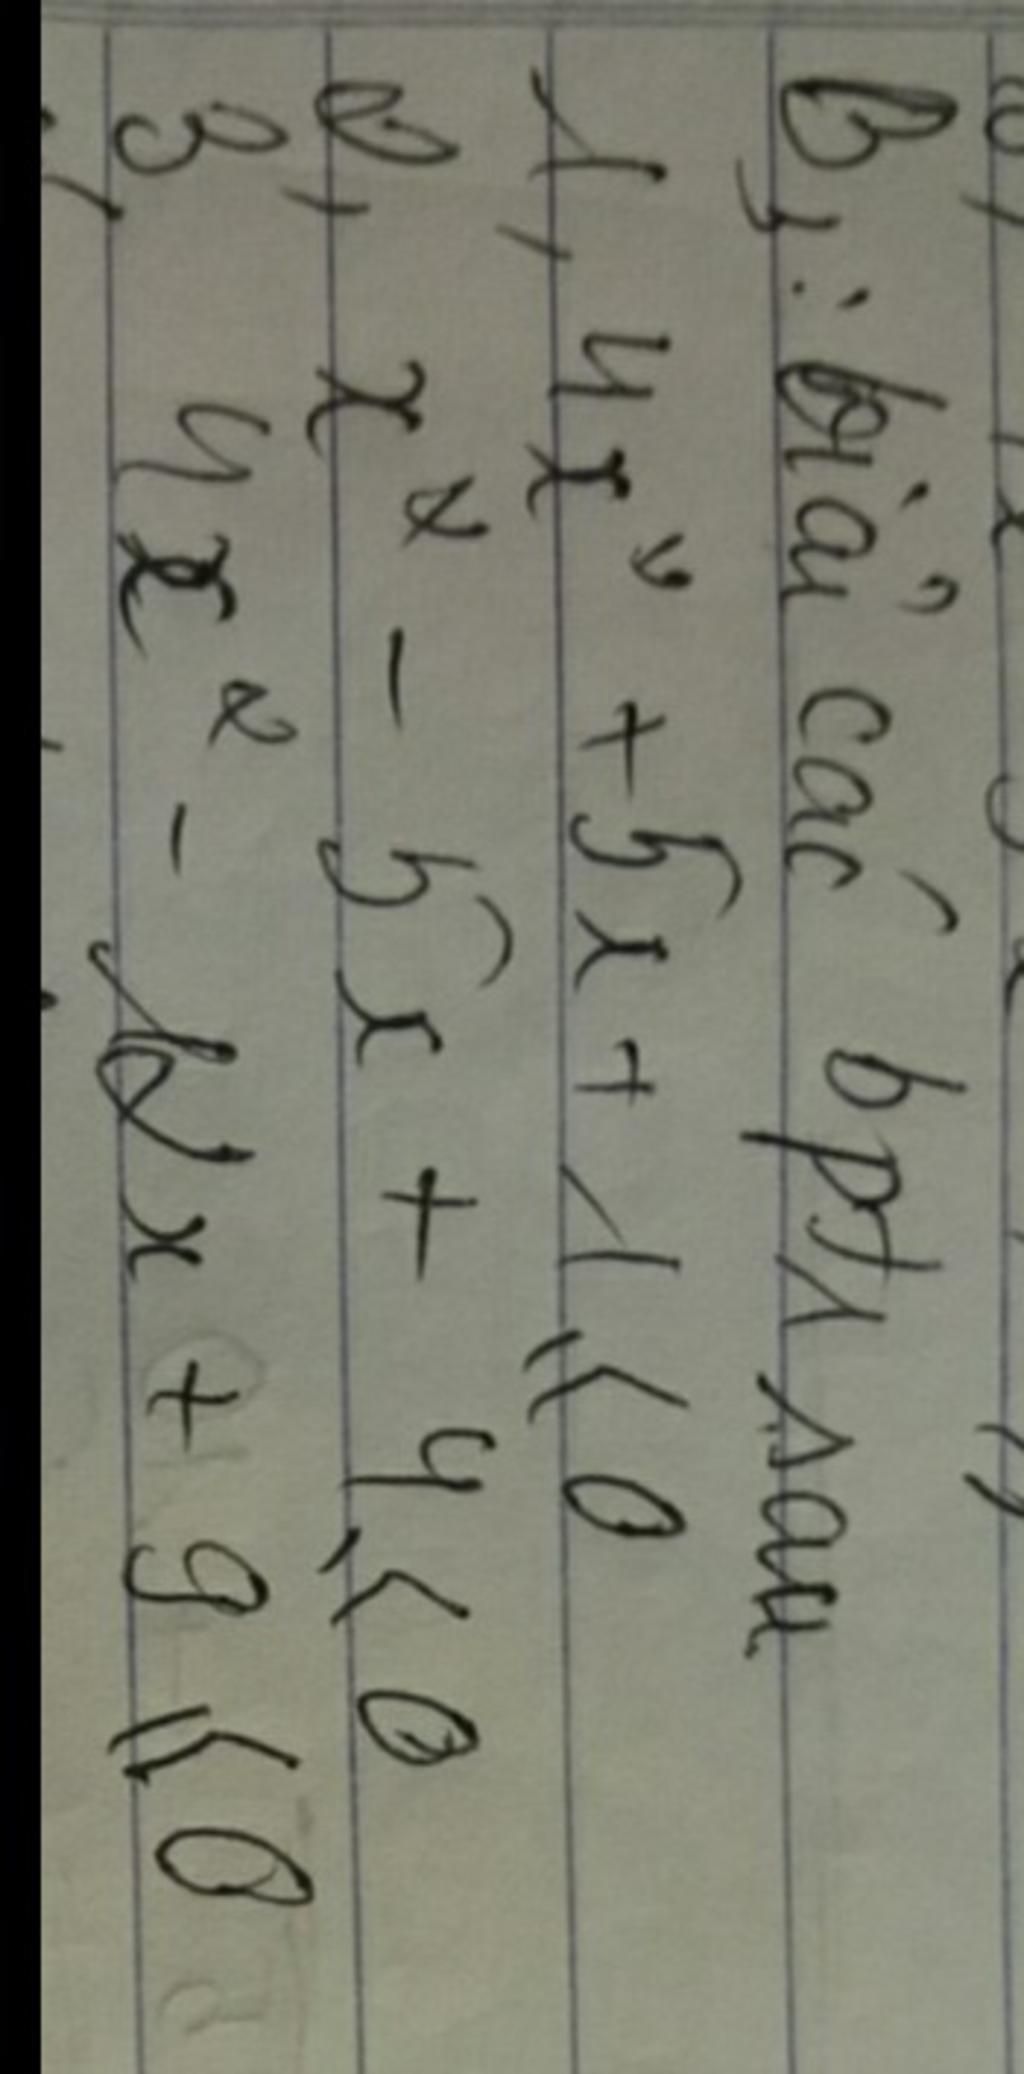 B, : Giải các bpt1 sau
1, 4x² + 5x + 1 ≤ 0
2, x² - 5x + 4 ≤ 0
3, 4x² - 12x + 9 ≤ 0